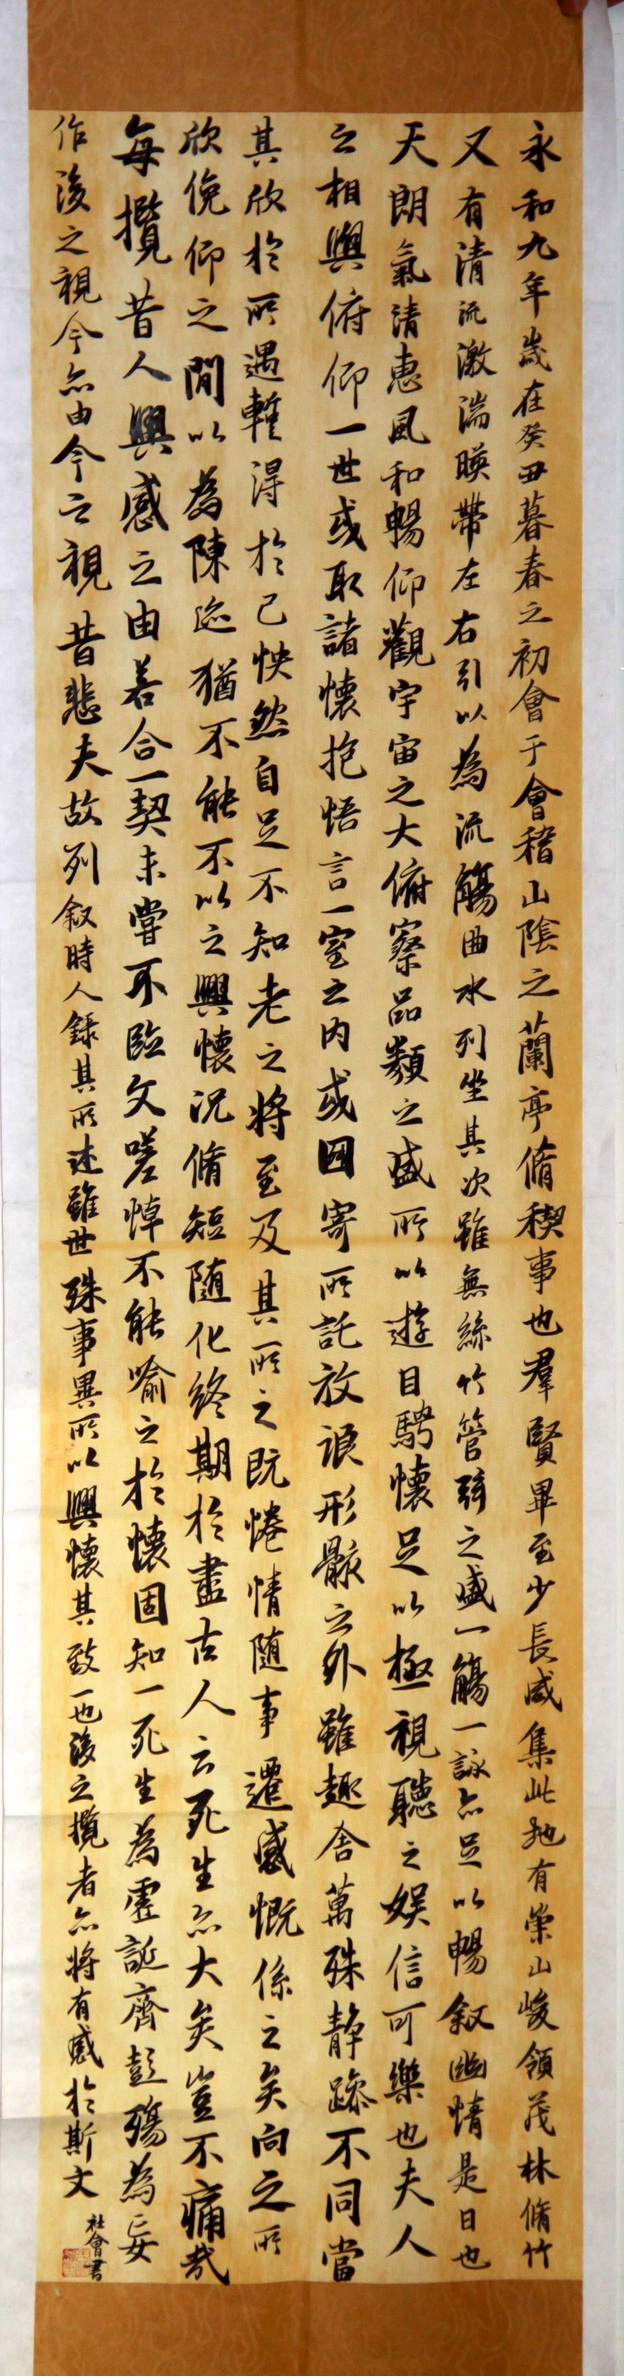 永和九年歲在癸丑暮春之初會于會稽山陰之蘭亭脩稧事也羣賢畢至少長咸集此地有崇山峻領茂林脩竹
又有清流激湍暎帶左右引以為流觴曲水列坐其次雖無絲竹管弦之盛一觴一詠亦足以暢叙幽情是日也
天朗氣清惠風和暢仰觀宇宙之大俯察品類之盛所以遊目騁懷足以極視聽之娱信可樂也夫人
之相與俯仰一世或取諸懷抱悟言一室之内或因寄所託放浪形骸之外雖趣舍萬殊静躁不同當
其欣於所遇暫得於己怏然自足不知老之將至及其所之既惓情隨事遷感慨係之矣向之所
欣俛仰之閒以為陳迹猶不能不以之興懷況脩短随化終期於盡古人云死生亦大矣豈不痛哉
每攬昔人興感之由若合一契未嘗不臨文嗟悼不能喻之於懷固知一死生為虛誕齊彭殤為妄
作後之視今亦由今之視昔悲夫故列叙時人錄其所述雖世殊事異所以興懷其致一也後之攬者亦將有感於斯文
社會書